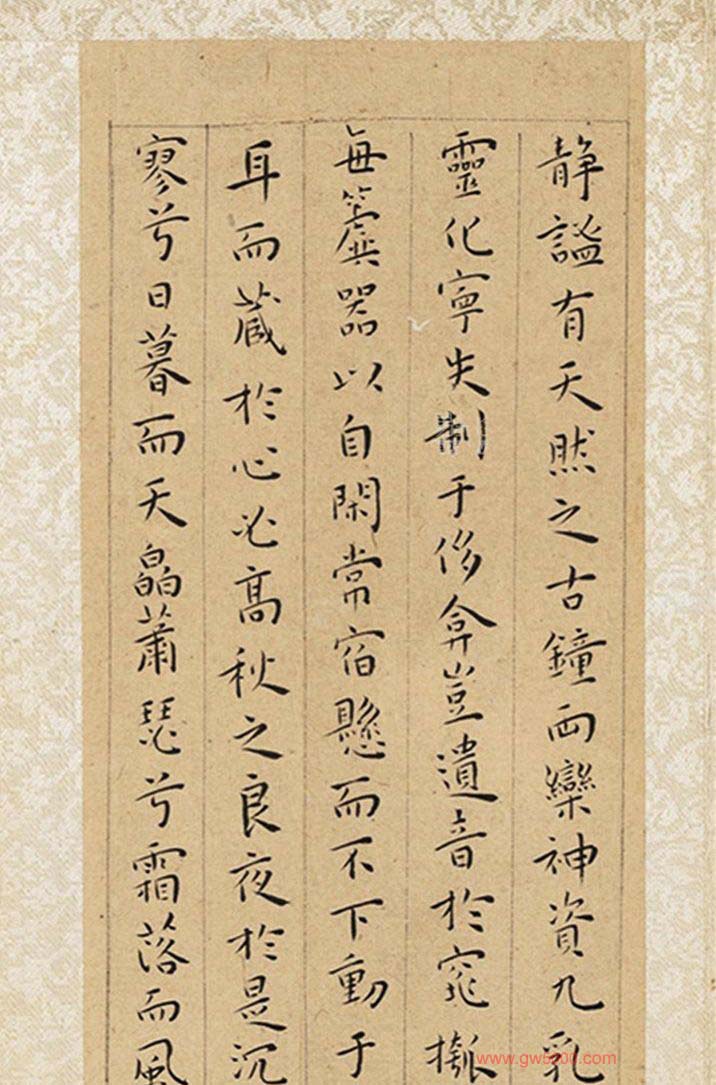 静謐有天然之古鐘兩欒神資九乳
靈化寧失制于侈弇豈遺音於窕
每簴器以自閑常宿懸而不下動于
耳而藏於心必高秋之良夜於是沉
寥兮日暮而天皛蕭瑟兮霜落而風
www.gw5200.com